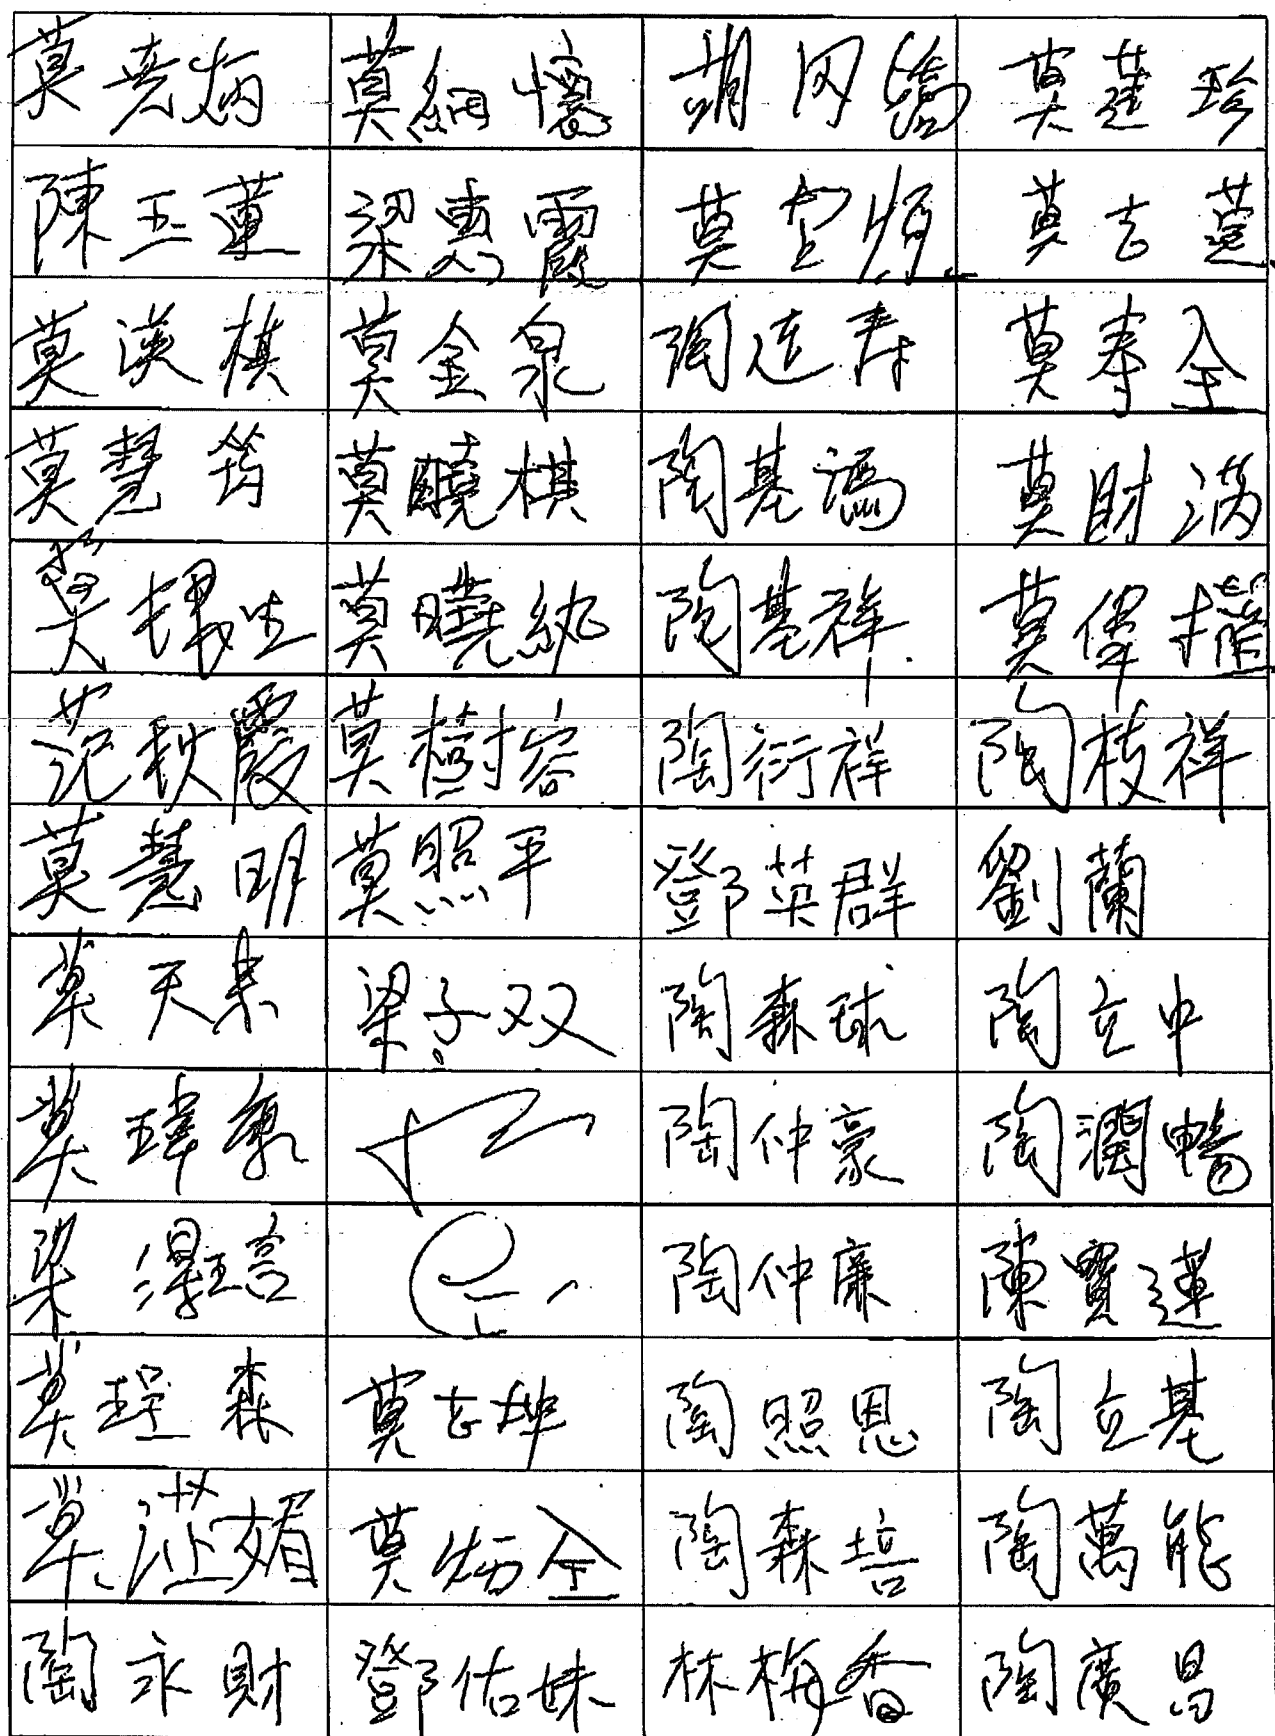 莫 莫 懷 莫 珍
陳玉蓮 梁惠霞 莫 莫
莫漢棋 莫金泉 陶連寿 莫奉全
莫慧筠 莫曉棋 陶基 莫財满
莫 生 莫曉納 陶基祥 莫偉
范秋霞 莫樹容 陶衍祥 陶枝祥
莫慧明 莫照平 鄧英群 劉蘭
莫天 梁子双 陶森球 陶立中
莫瑋 陶仲豪 陶潤暢
梁 陶仲廉 陳寶蓮
莫 森 莫志坤 陶照恩 陶立基
莫 媚 莫炳全 陶森培 陶萬能
陶永財 鄧佑妹 林梅香 陶廣昌